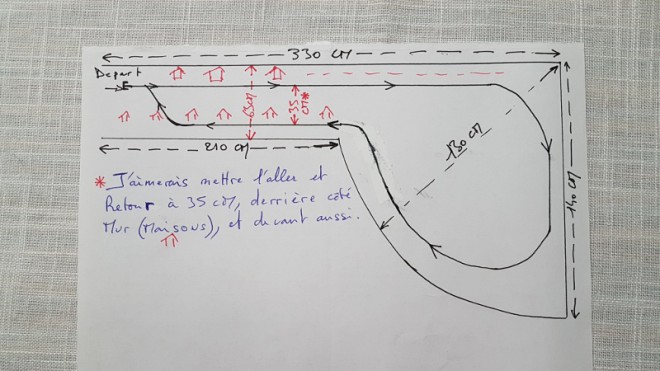 330 cm
Depart
63cm
35 cm*
130 cm
140 cm
210 cm
* J'aimerais mettre l'aller et
Retour à 35 cm, derrière côté
Mur (Maisons), et devant aussi.